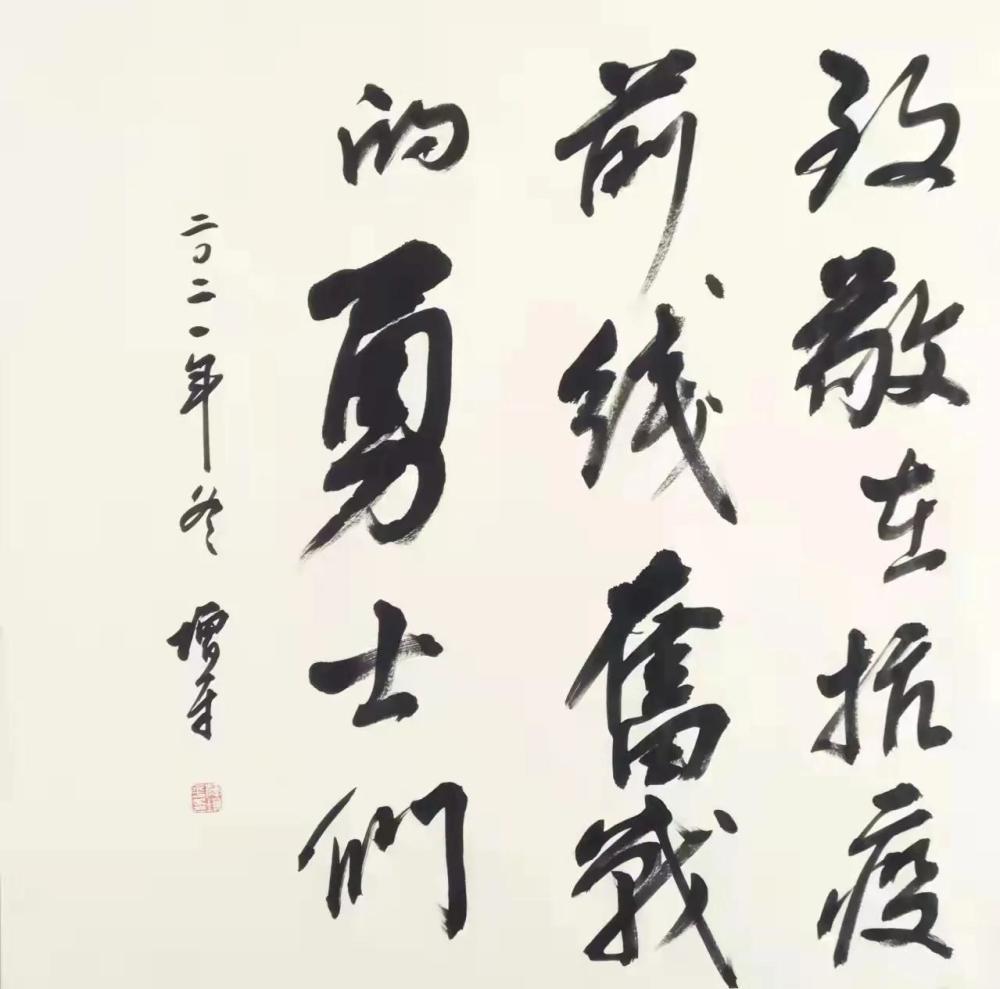 致敬在抗疫
前线奮戰
的勇士们
二〇二一年冬 增平